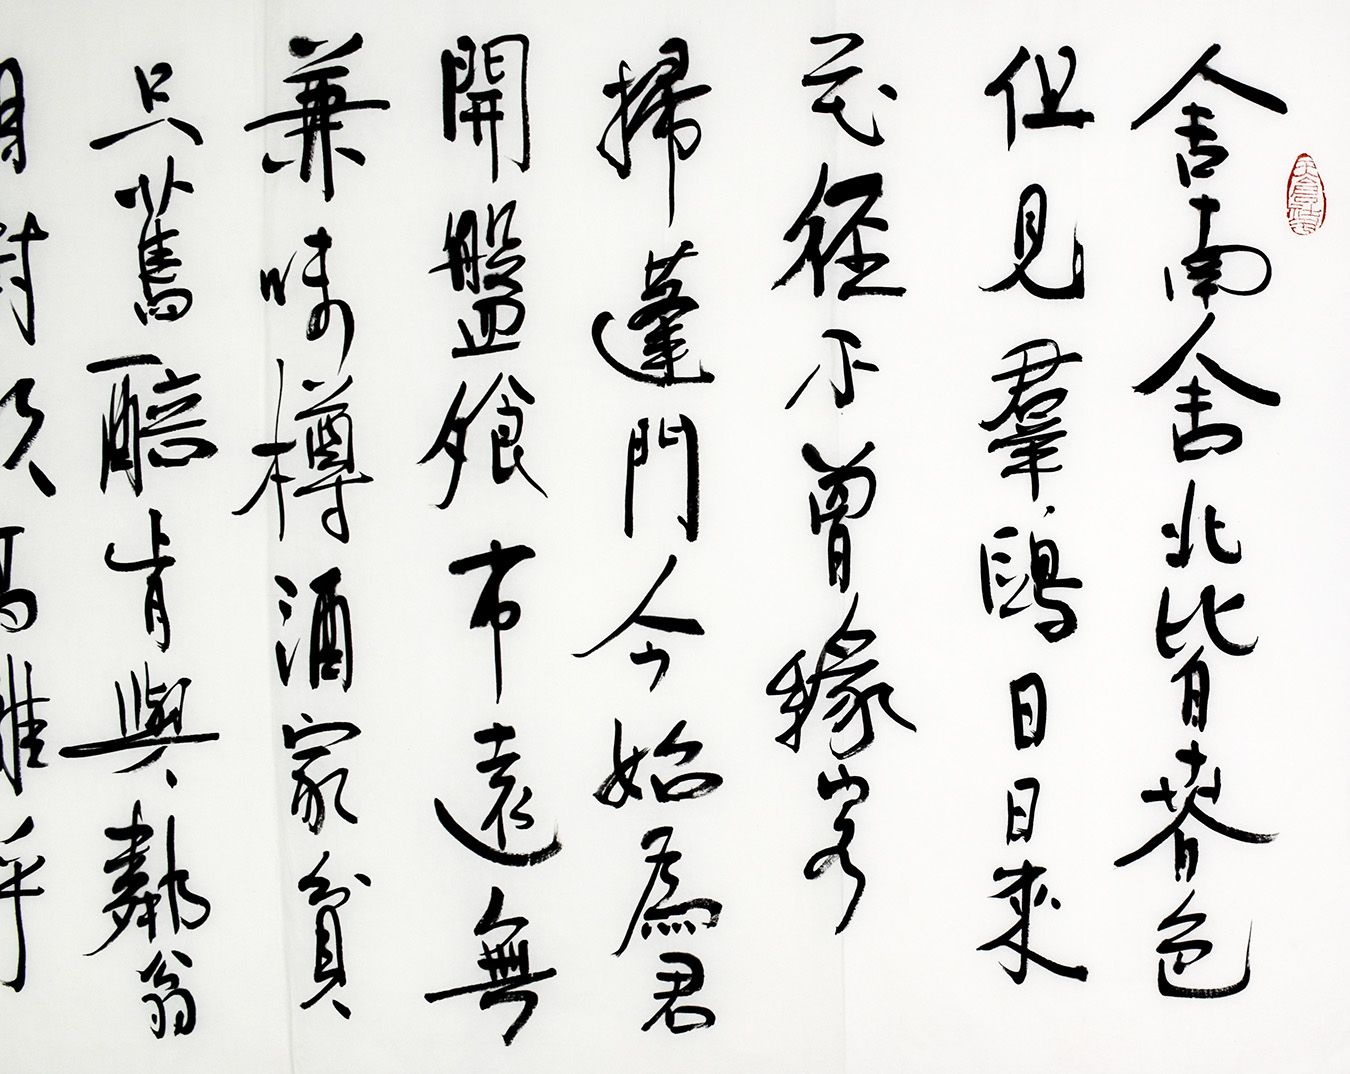 舍南舍北皆春色
但見羣鷗日日來
花徑不曾緣客
掃蓬門今始為君
開盤飧市遠無
兼味樽酒家貧
只舊醅肯與鄰翁